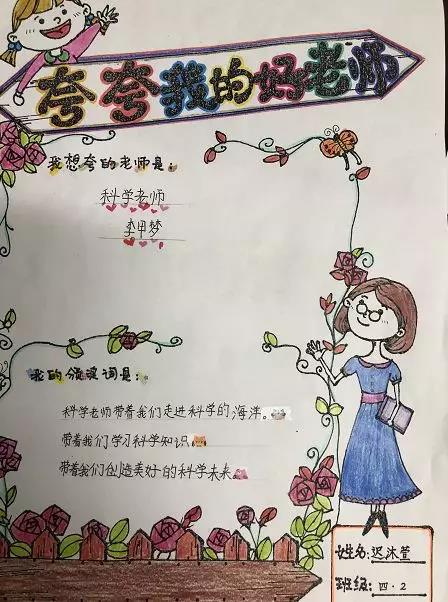 夸夸我的好老师
我想夸的老师是:
科学老师
李甲梦
我的颁奖词是:
科学老师带着我们走进科学的海洋。
带着我们学习科学知识。
带着我们创造美好的科学未来。
姓名:迟沐萱
班级:四·2